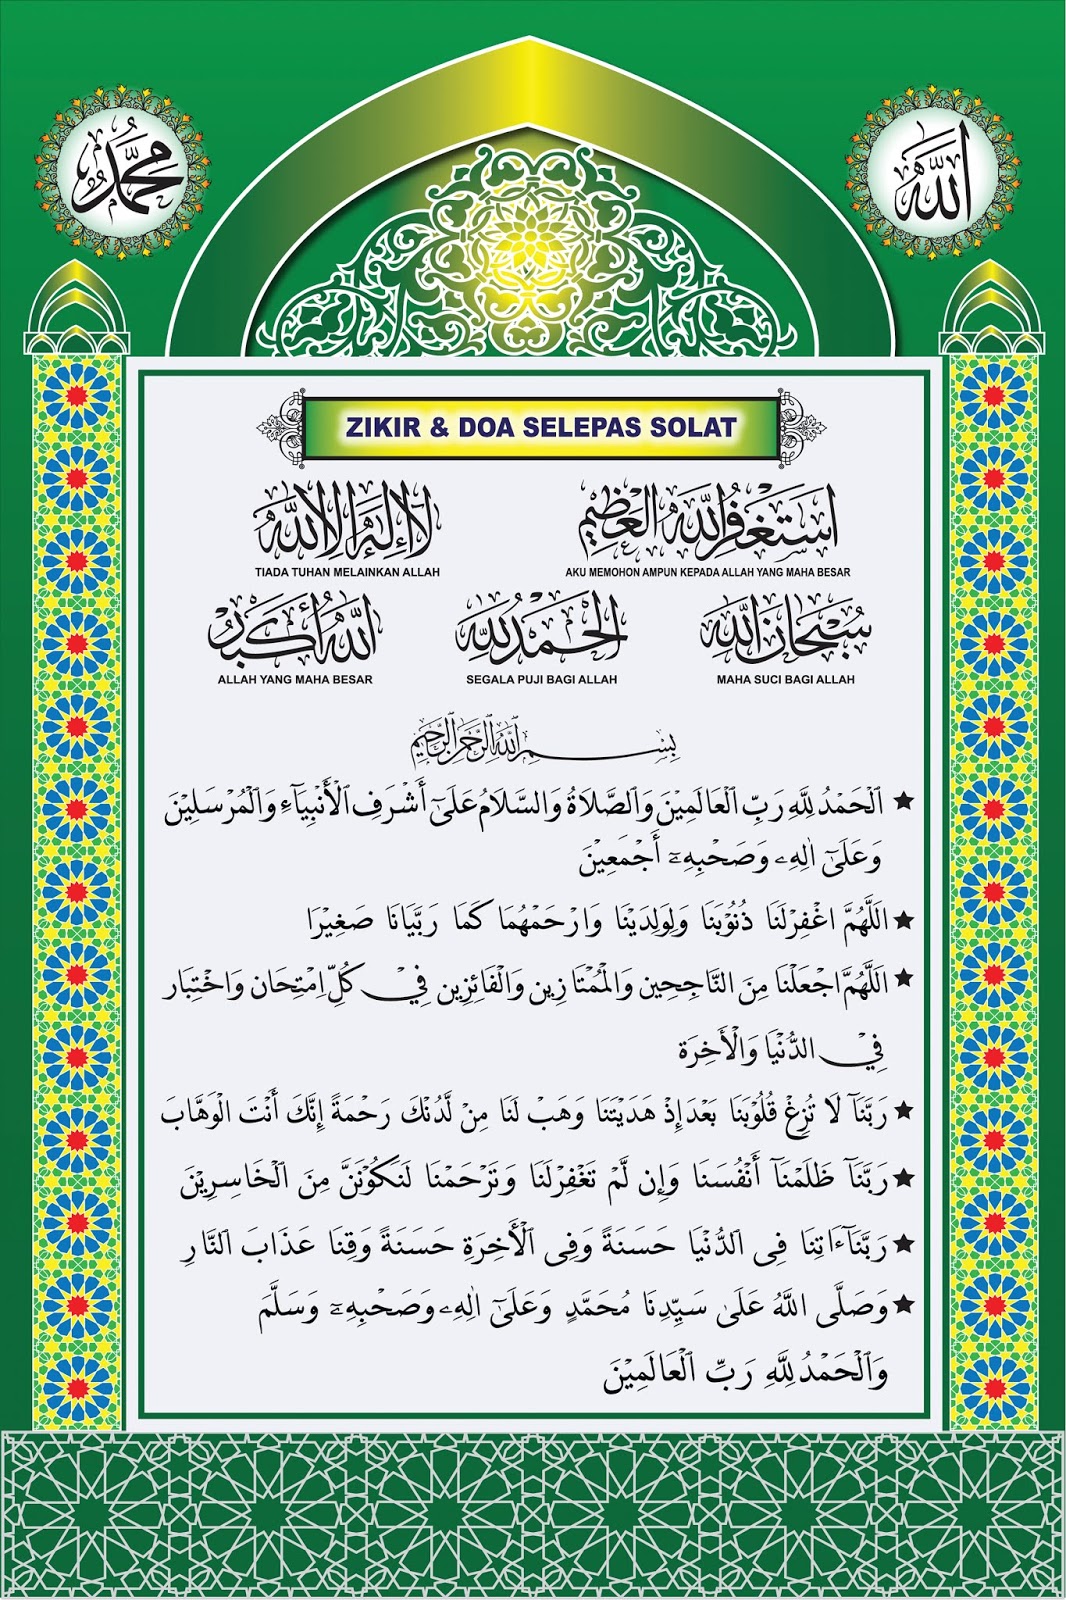 محمد
الله
ZIKIR & DOA SELEPAS SOLAT
اَسْتَغْفِرُ اللهَ الْعَظِيْمِ
AKU MEMOHON AMPUN KEPADA ALLAH YANG MAHA BESAR
لَا إِلٰهَ إِلَّا اللهُ
TIADA TUHAN MELAINKAN ALLAH
سُبْحَانَ اللهِ
MAHA SUCI BAGI ALLAH
الْحَمْدُ لِلّٰهِ
SEGALA PUJI BAGI ALLAH
اللهُ أَكْبَرُ
ALLAH YANG MAHA BESAR
بِسْمِ اللهِ الرَّحْمٰنِ الرَّحِيْمِ
★ اَلْحَمْدُ لِلَّهِ رَبِّ الْعَالَمِيْنَ وَالصَّلَاةُ وَالسَّلَامُ عَلَىٓ أَشْرَفِ الْأَنْبِيَآءِ وَالْمُرْسَلِيْنَ
وَعَلَىٓ اٰلِهِۦ وَصَحْبِهِۦٓ أَجْمَعِيْنَ
★ اَللَّهُمَّ اغْفِرْلَنَا ذُنُوْبَنَا وَلِوَلِدَيْنَا وَارْحَمْهُمَا كَمَا رَبَّيَانَا صَغِيْرَا
★ اَللَّهُمَّ اجْعَلْنَا مِنَ النَّاجِحِين وَالْمُمْتَازِين وَالْفَائِزِين فِيْ كُلِّ امْتِحَان وَاخْتِبَار
فِيْ الدُّنْيَا وَالْأَخِرَة
★ رَبَّنَآ لَا تُزِغْ قُلُوْبَنَا بَعْدَ إِذْ هَدَيْتَنَا وَهَبْ لَنَا مِنْ لَّدُنْكَ رَحْمَةً إِنَّكَ أَنْتَ الْوَهَّابَ
★ رَبَّنَآ ظَلَمْنَآ أَنْفُسَنَا وَإِن لَّمْ تَغْفِرْلَنَا وَتَرْحَمْنَا لَنَكُوْنَنَّ مِنَ الْخَاسِرِيْنَ
★ رَبَّنَآ ءَاتِنَا فِى الدُّنْيَا حَسَنَةً وَفِى الْأَخِرَةِ حَسَنَةً وَقِنَا عَذَابَ النَّارِ
★ وَصَلَّى اللَّهُ عَلَىٰ سَيِّدِنَا مُحَمَّدٍ وَعَلَىٓ اٰلِهِۦ وَصَحْبِهِۦٓ وَسَلَّمَ
وَالْحَمْدُ لِلَّهِ رَبِّ الْعَالَمِيْنَ